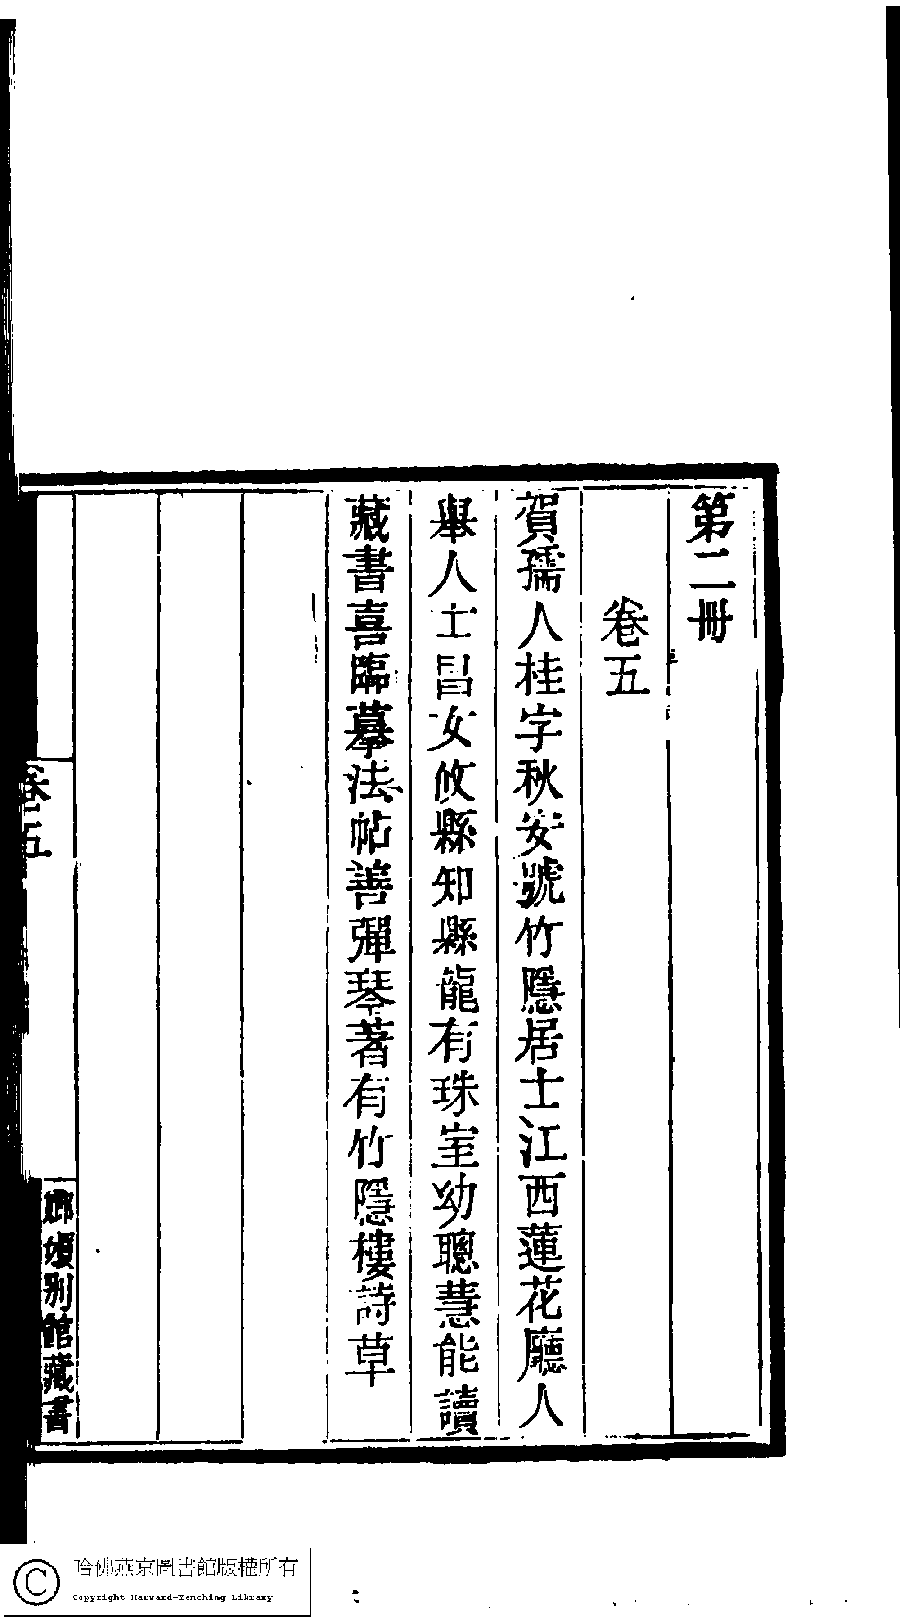 第二冊
卷五
賀孺人桂字秋安號竹隱居士江西蓮花廳人
舉人士昌女攸縣知縣龍有珠室幼聰慧能讀
藏書喜臨摹法帖善彈琴著有竹隱樓詩草
卷五
嫏嬛別館藏書
哈佛燕京圖書館版權所有
Copyright Harvard-Yenching Library